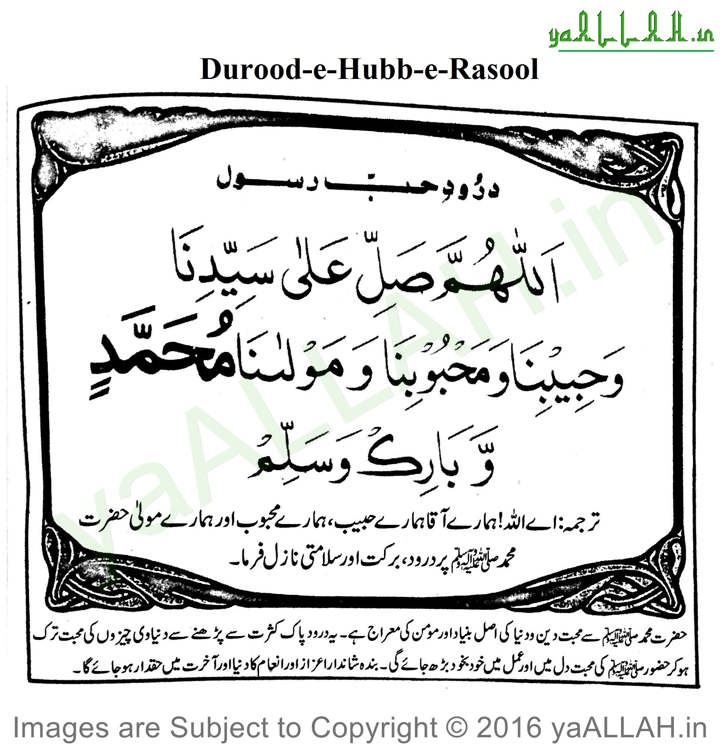 yaALLAH.in
Durood-e-Hubb-e-Rasool
درُودِ حبِّ رسول
اَللّٰهُمَّ صَلِّ عَلٰى سَيِّدِنَا
وَحَبِيْبِنَا وَمَحْبُوْبِنَا وَمَوْلٰىنَا مُحَمَّدٍ
وَّبَارِكْ وَسَلِّمْ
ترجمہ: اے اللہ! ہمارے آقا ہمارے حبیب، ہمارے محبوب اور ہمارے مولیٰ حضرت
محمد ﷺ پر درود، برکت اور سلامتی نازل فرما۔
حضرت محمد ﷺ سے محبت دین و دنیا کی اصل بنیاد اور مؤمن کی معراج ہے۔ یہ درود پاک کثرت سے پڑھنے سے دنیاوی چیزوں کی محبت ترک
ہو کر حضور ﷺ کی محبت دل میں اور عمل میں خود بخود بڑھ جائے گی۔ بندہ شاندار اعزاز اور انعام کا دنیا اور آخرت میں حقدار ہو جائے گا۔
yaALLAH.in
Images are Subject to Copyright © 2016 yaALLAH.in